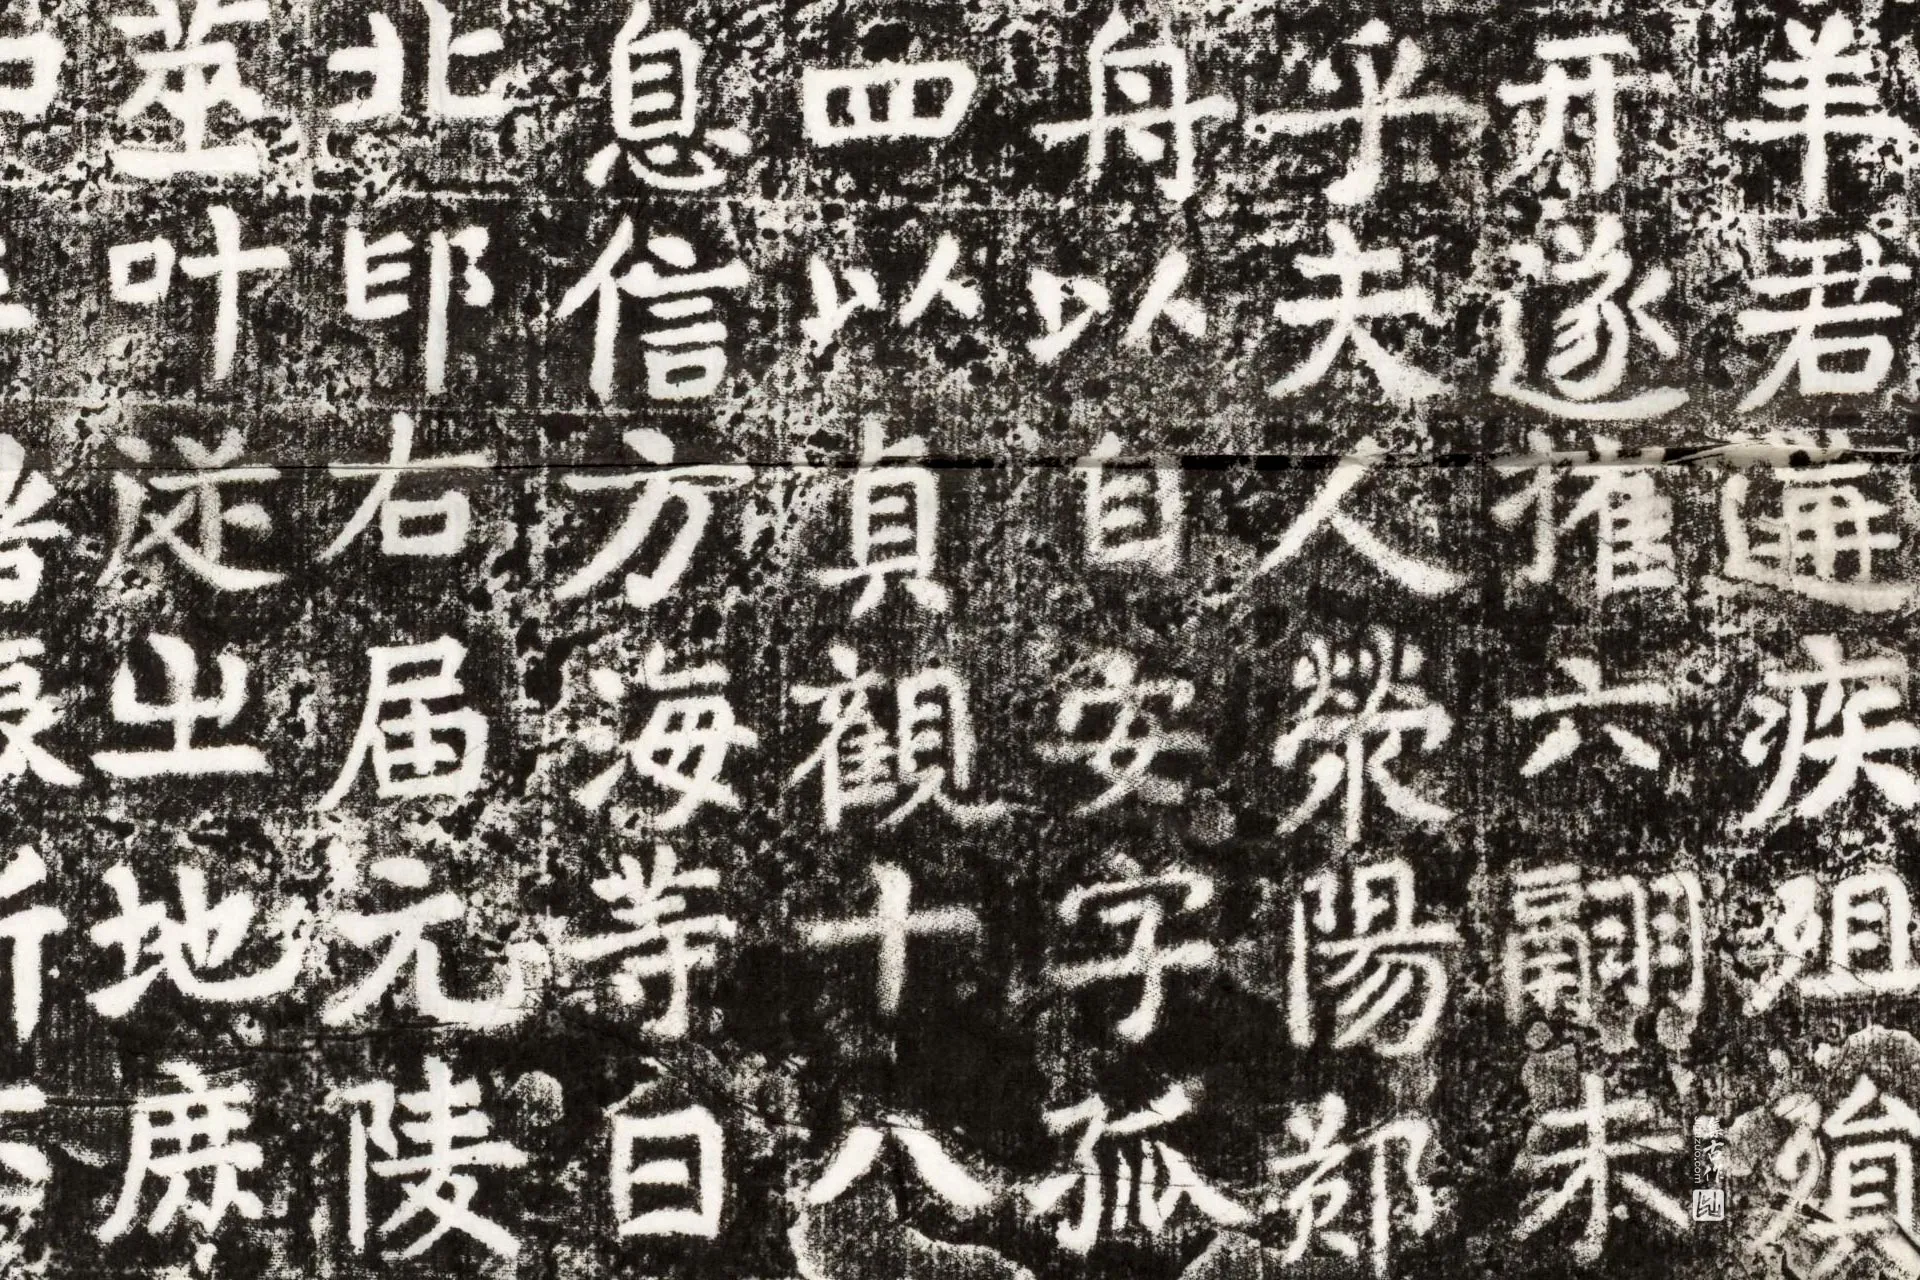 羊君遘疾殂殞
开遂摧六翮未
乎夫人滎陽鄭
舟以自安字孤
四以貞觀十八
息信方海等日
北邙右届元陵
塋叶從出地庶